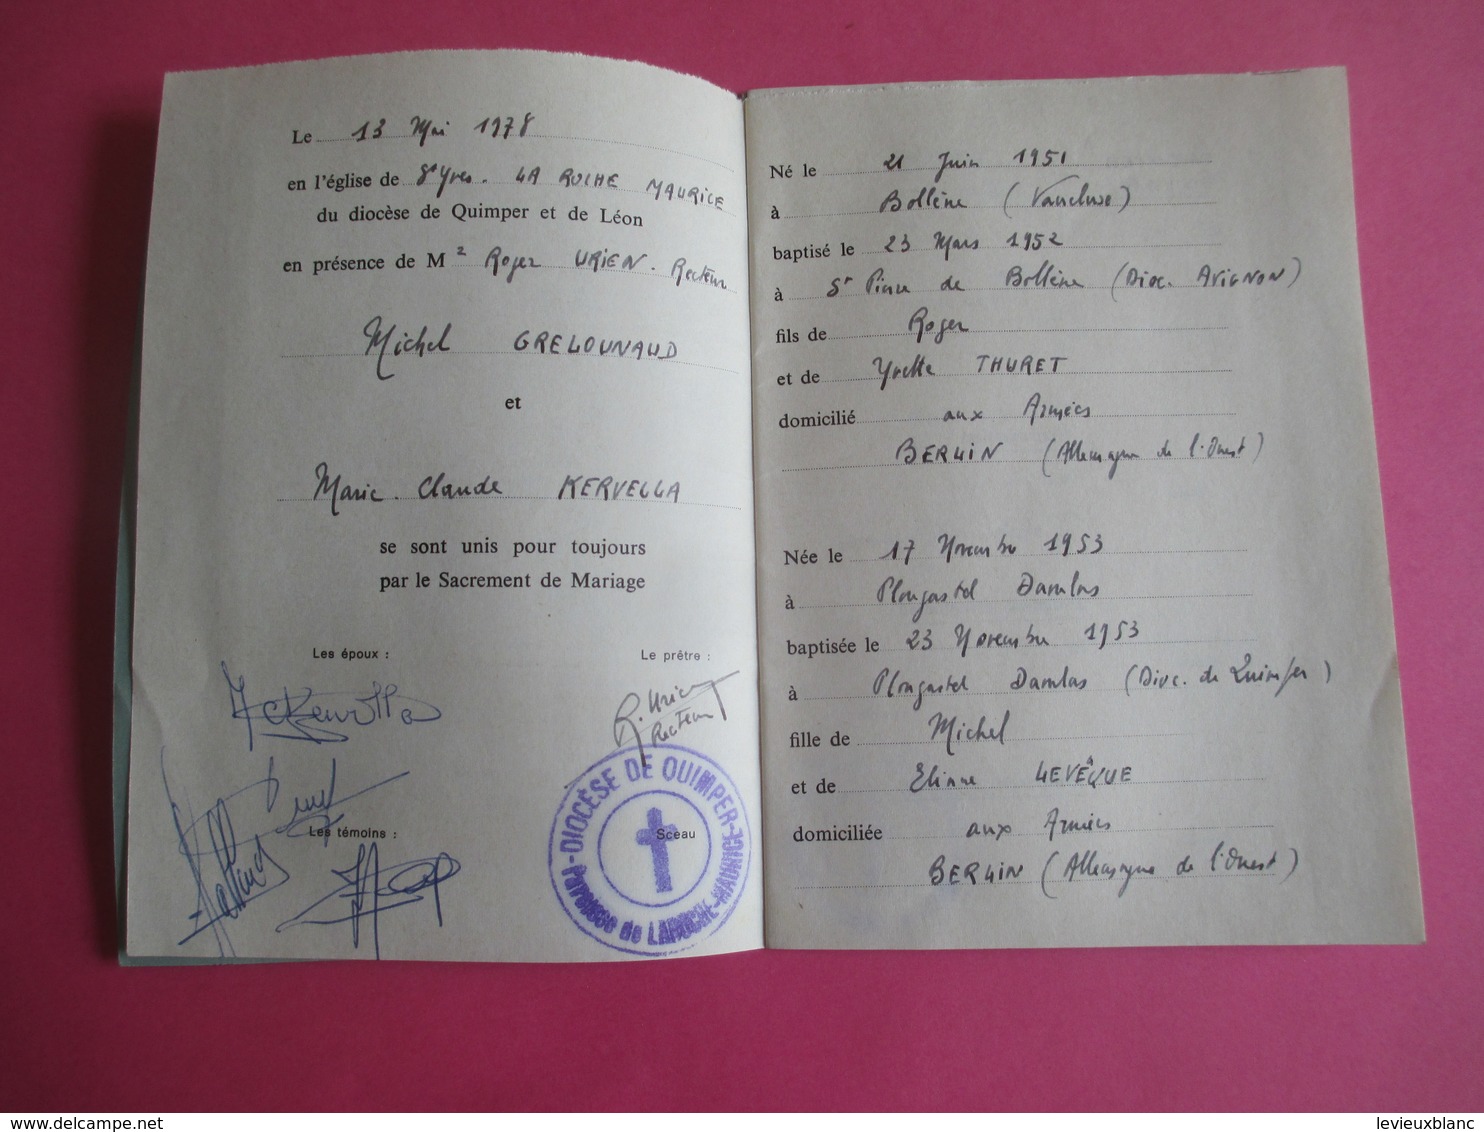 Le 13 Mai 1978
en l'église de St Yves. LA ROCHE MAURICE
du diocèse de Quimper et de Léon
en présence de Mr Roger URIEN. Recteur
Michel GRELOUNAUD
et
Marie-Claude KERVELLA
se sont unis pour toujours
par le Sacrement de Mariage
Les époux :
Le prêtre :
R. Urien
Recteur
Les témoins :
Sceau
DIOCÈSE DE QUIMPER
Paroisse de LAROCHE-MAURICE
Né le 21 Juin 1951
à Bollène (Vaucluse)
baptisé le 23 Mars 1952
à St Pierre de Bollène (Dioc. AVIGNON)
fils de Roger
et de Yvette THURET
domicilié aux Armées
BERLIN (Allemagne de l'Ouest)
Née le 17 Novembre 1953
à Plougastel Daoulas
baptisée le 23 Novembre 1953
à Plougastel Daoulas (Dioc. de Quimper)
fille de Michel
et de Eliane LEVÊQUE
domiciliée aux Armées
BERLIN (Allemagne de l'Ouest)
www.delcampe.net
levieuxblanc